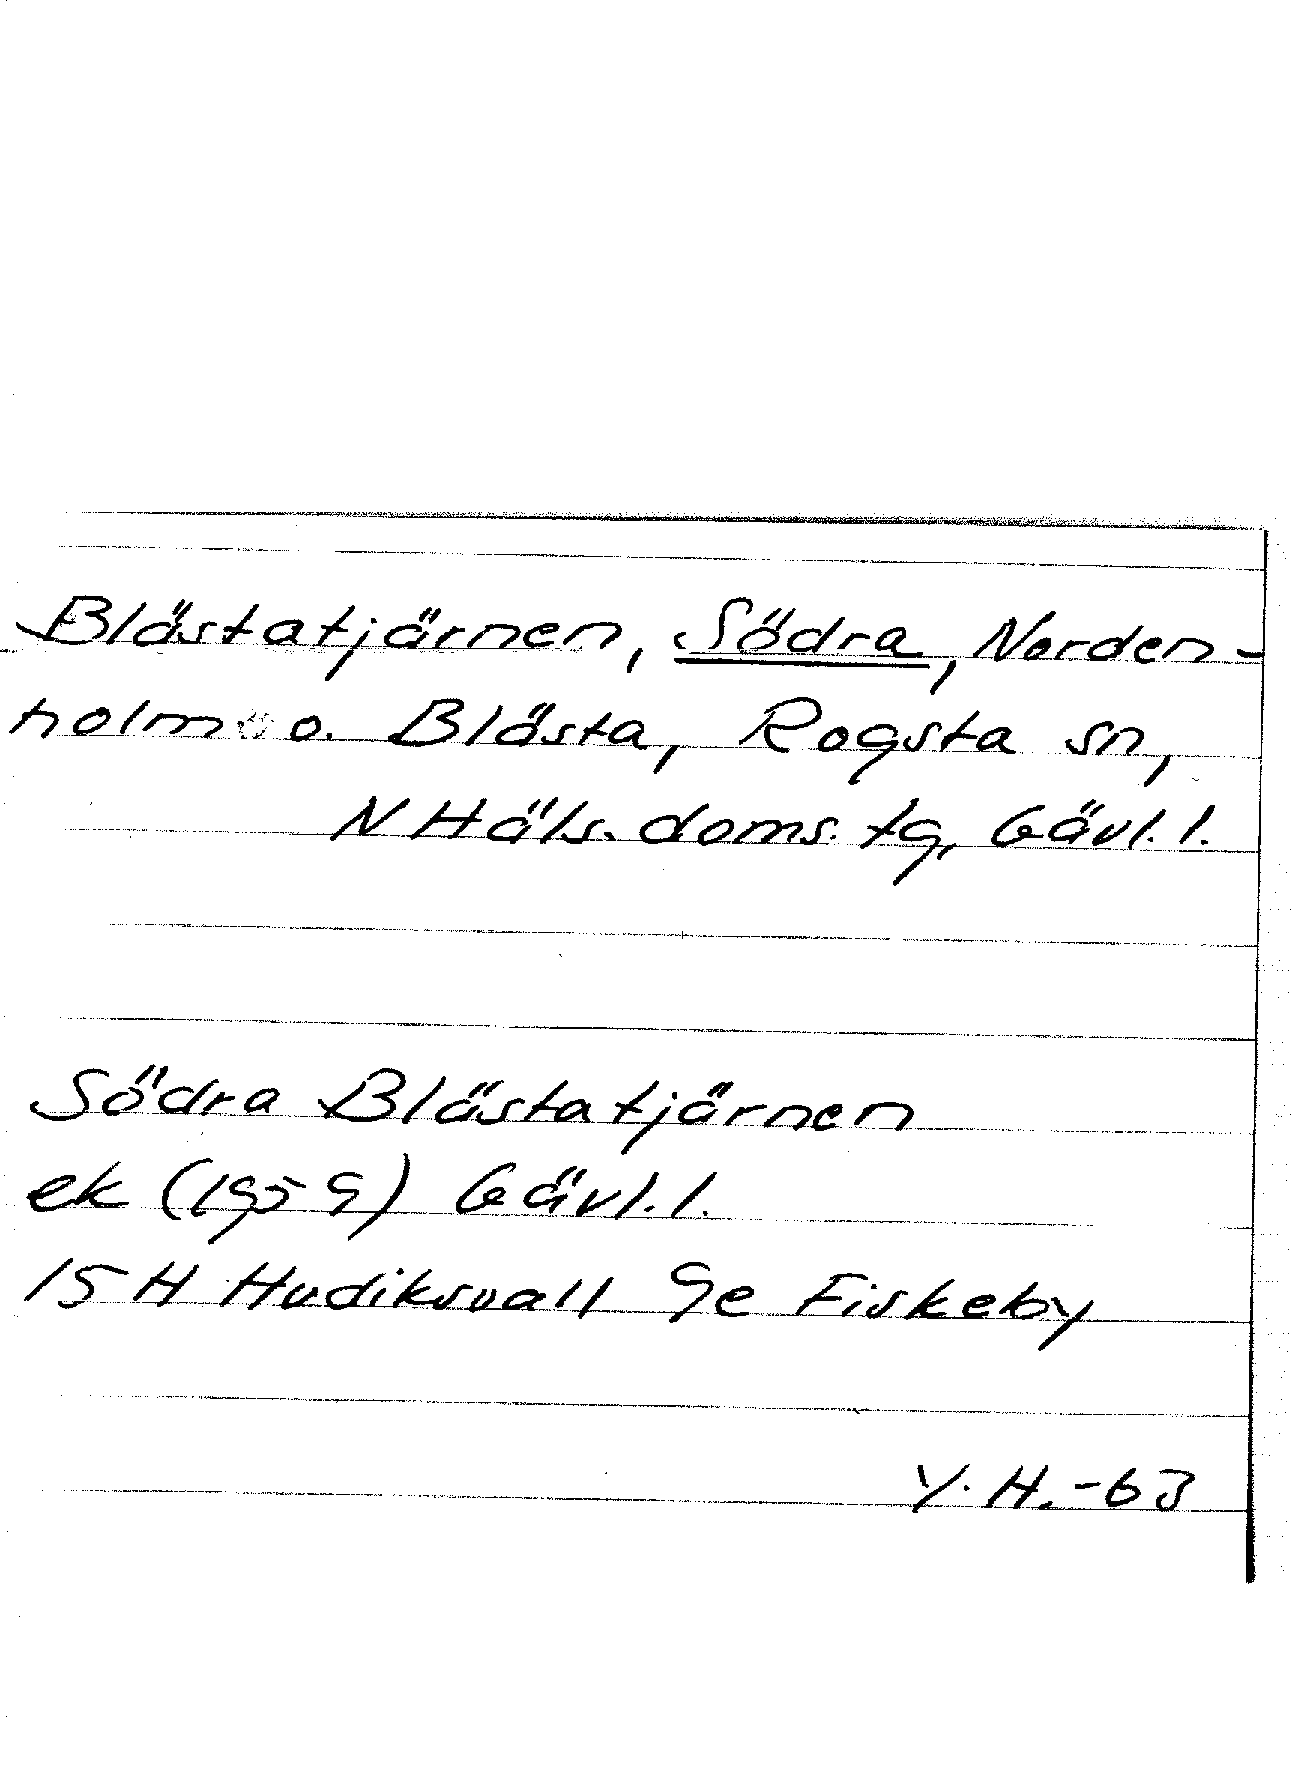 Blästatjärnen, Södra, Norden-
holm o. Blästa, Rogsta sn,
N Häls. doms. tg, Gävl. l.
Södra Blästatjärnen
ek (1959) Gävl. l.
15 H Hudiksvall 9e Fiskeby
Y. H. -63